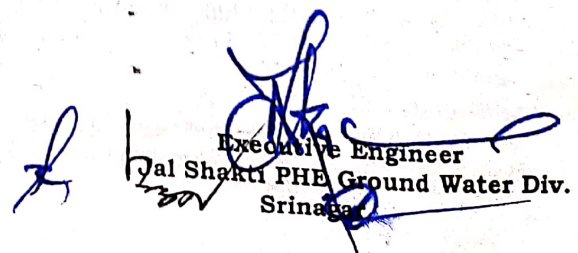 Executive Engineer
Jal Shakti PHE Ground Water Div.
Srinagar